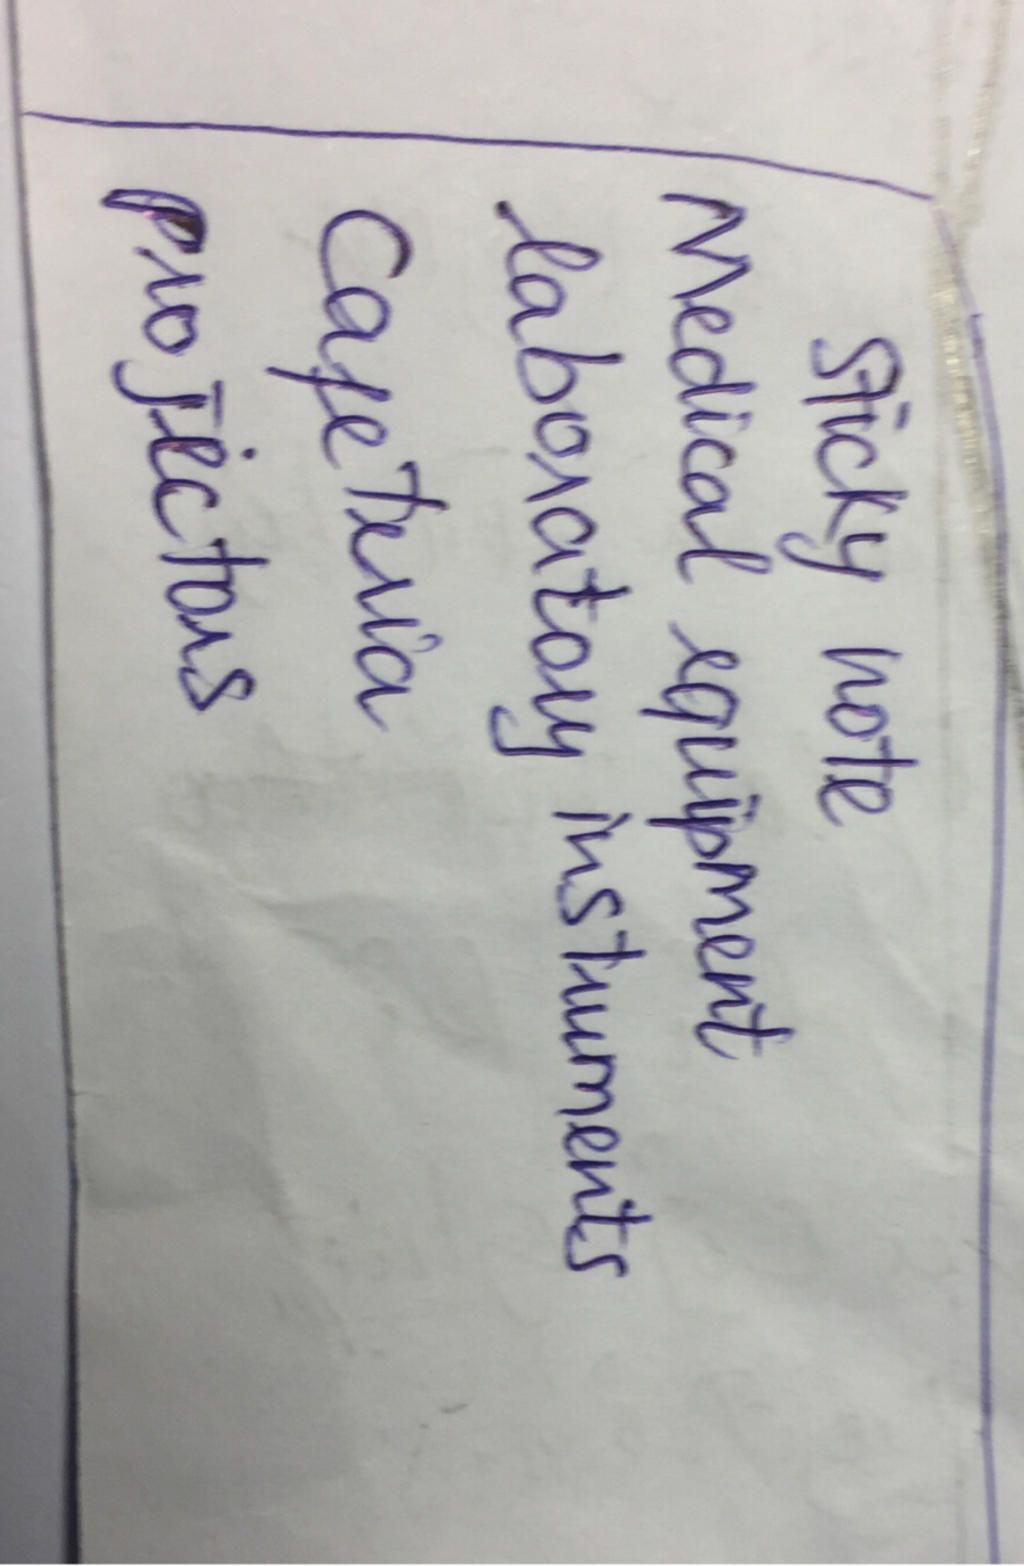 Sticky note
Medical equipment
laboratory instruments
Cafeteria
projectors